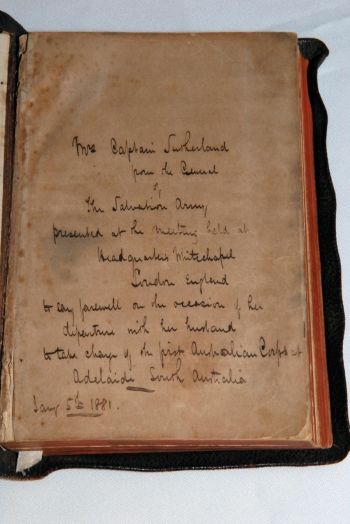 Mrs Captain Sutherland
from the General
of
The Salvation Army,
presented at the meeting held at
Headquarters Whitechapel
London England
to say farewell on the occasion of her
departure with her husband
to take charge of the first Australian Corps at
Adelaide South Australia
Jany. 5th 1881.